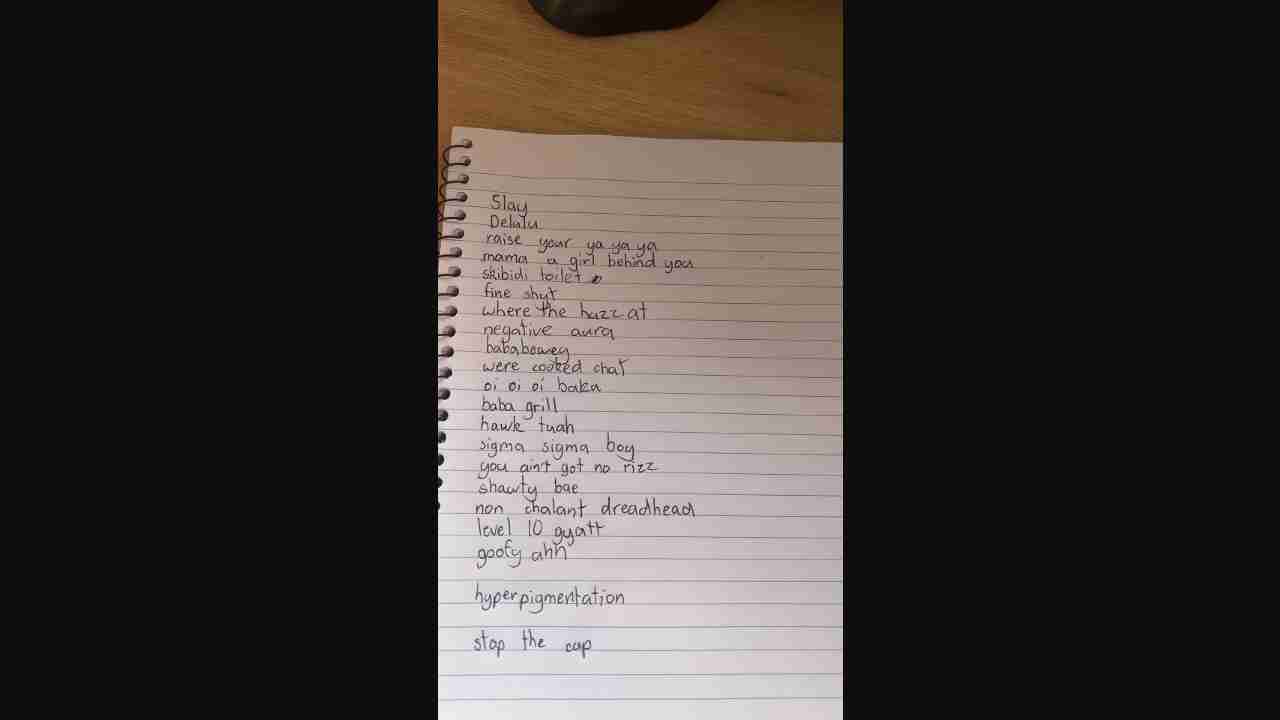 Slay
Delulu
raise your ya ya ya
mama a girl behind you
skibidi toilet
fine shyt
where the huzz at
negative aura
bababowey
were cooked chat
oi oi oi baka
baba grill
hawk tuah
sigma sigma boy
you ain't got no rizz
shawty bae
non chalant dreadhead
level 10 gyatt
goofy ahh
hyperpigmentation
stop the cap